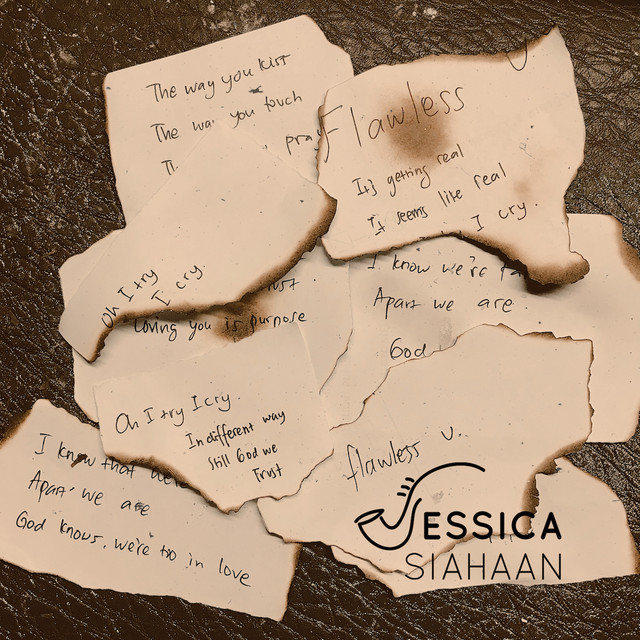 The way you kiss
The way you touch
pray
Flawless U
It's getting real
It seems like real
I cry.
Oh I try
I cry.
Loving you is purpose
I know we're
Apart we are
God
Oh I try I cry.
In different way
Still God we
Trust
flawless U.
I know that we
Apart we are
God knows, we're too in love
JESSICA
SIAHAAN